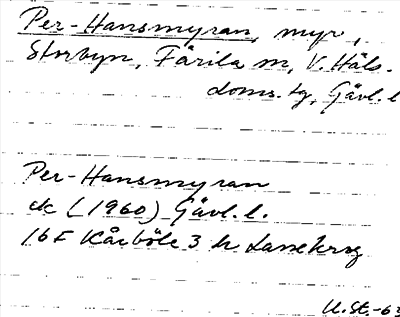 Per-Hansmyran, myr,
Storbyn, Färila sn, V. Häls.
doms. tg, Gävl. l
Per-Hansmyran
ek (1960) Gävl. l.
16F Kårböle 3 h Lassekrog
U.St.-63